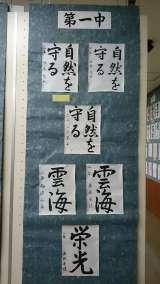 第一中
自然を
守る
自然を
守る
自然を
守る
雲海
雲海
栄光